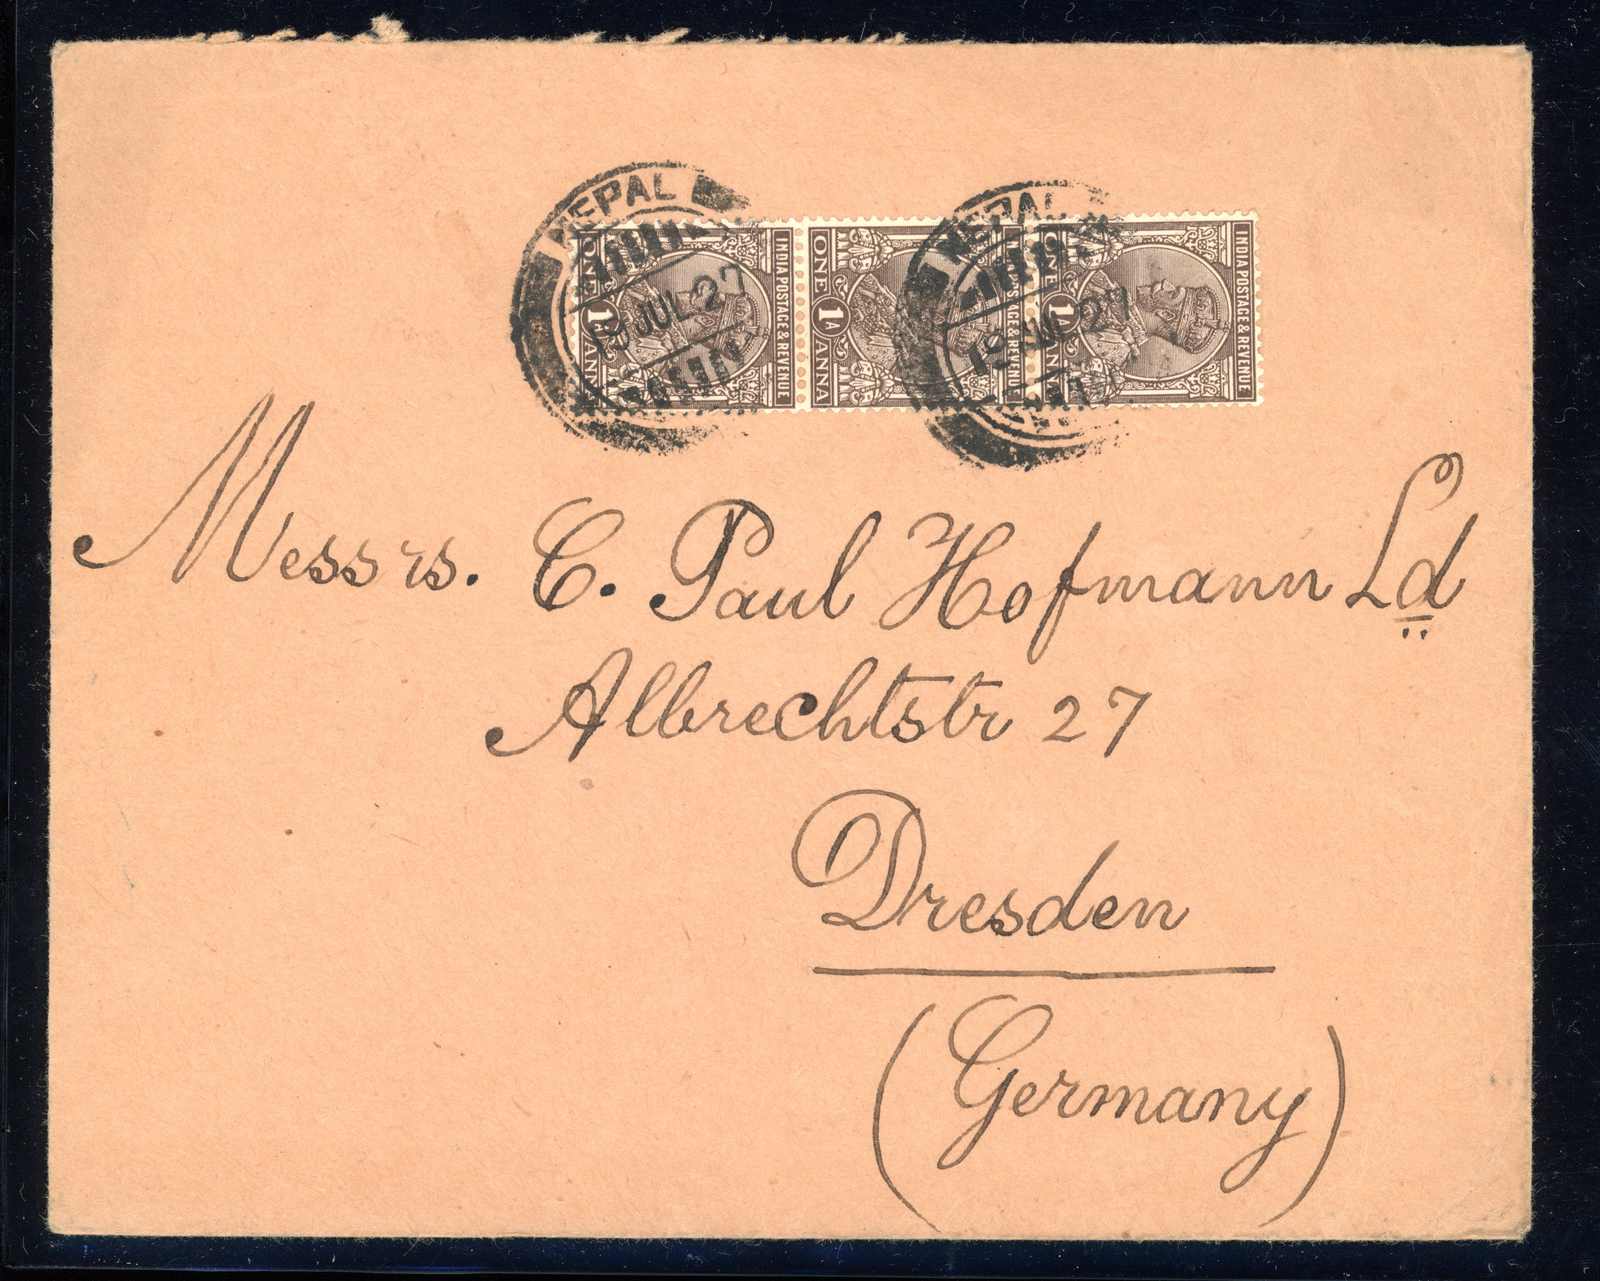 NEPAL
19 JUL 27
NEPAL
19 JUL 27
INDIA POSTAGE & REVENUE
ONE 1A ANNA
POSTAGE & REVENUE
ONE 1A ANNA
INDIA POSTAGE & REVENUE
ONE 1
Messrs. C. Paul Hofmann Ld
Albrechtstr 27
Dresden
(Germany)